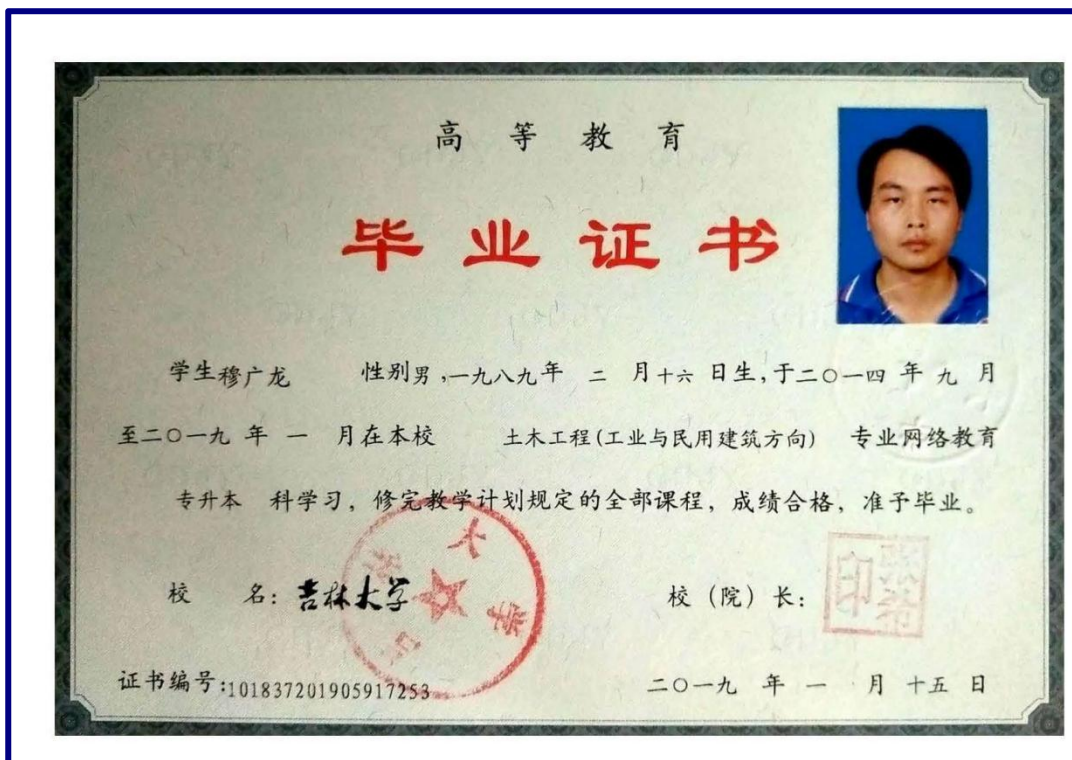 高等教育
毕业证书
学生穆广龙 性别男,一九八九年 二 月十六 日生,于二〇一四 年 九 月
至二〇一九 年 一 月在本校 土木工程(工业与民用建筑方向) 专业网络教育
专升本 科学习，修完教学计划规定的全部课程，成绩合格，准予毕业。
校 名：吉林大学 校（院）长：
吉林大学
证书编号:101837201905917253 二〇一九 年 一 月 十五 日